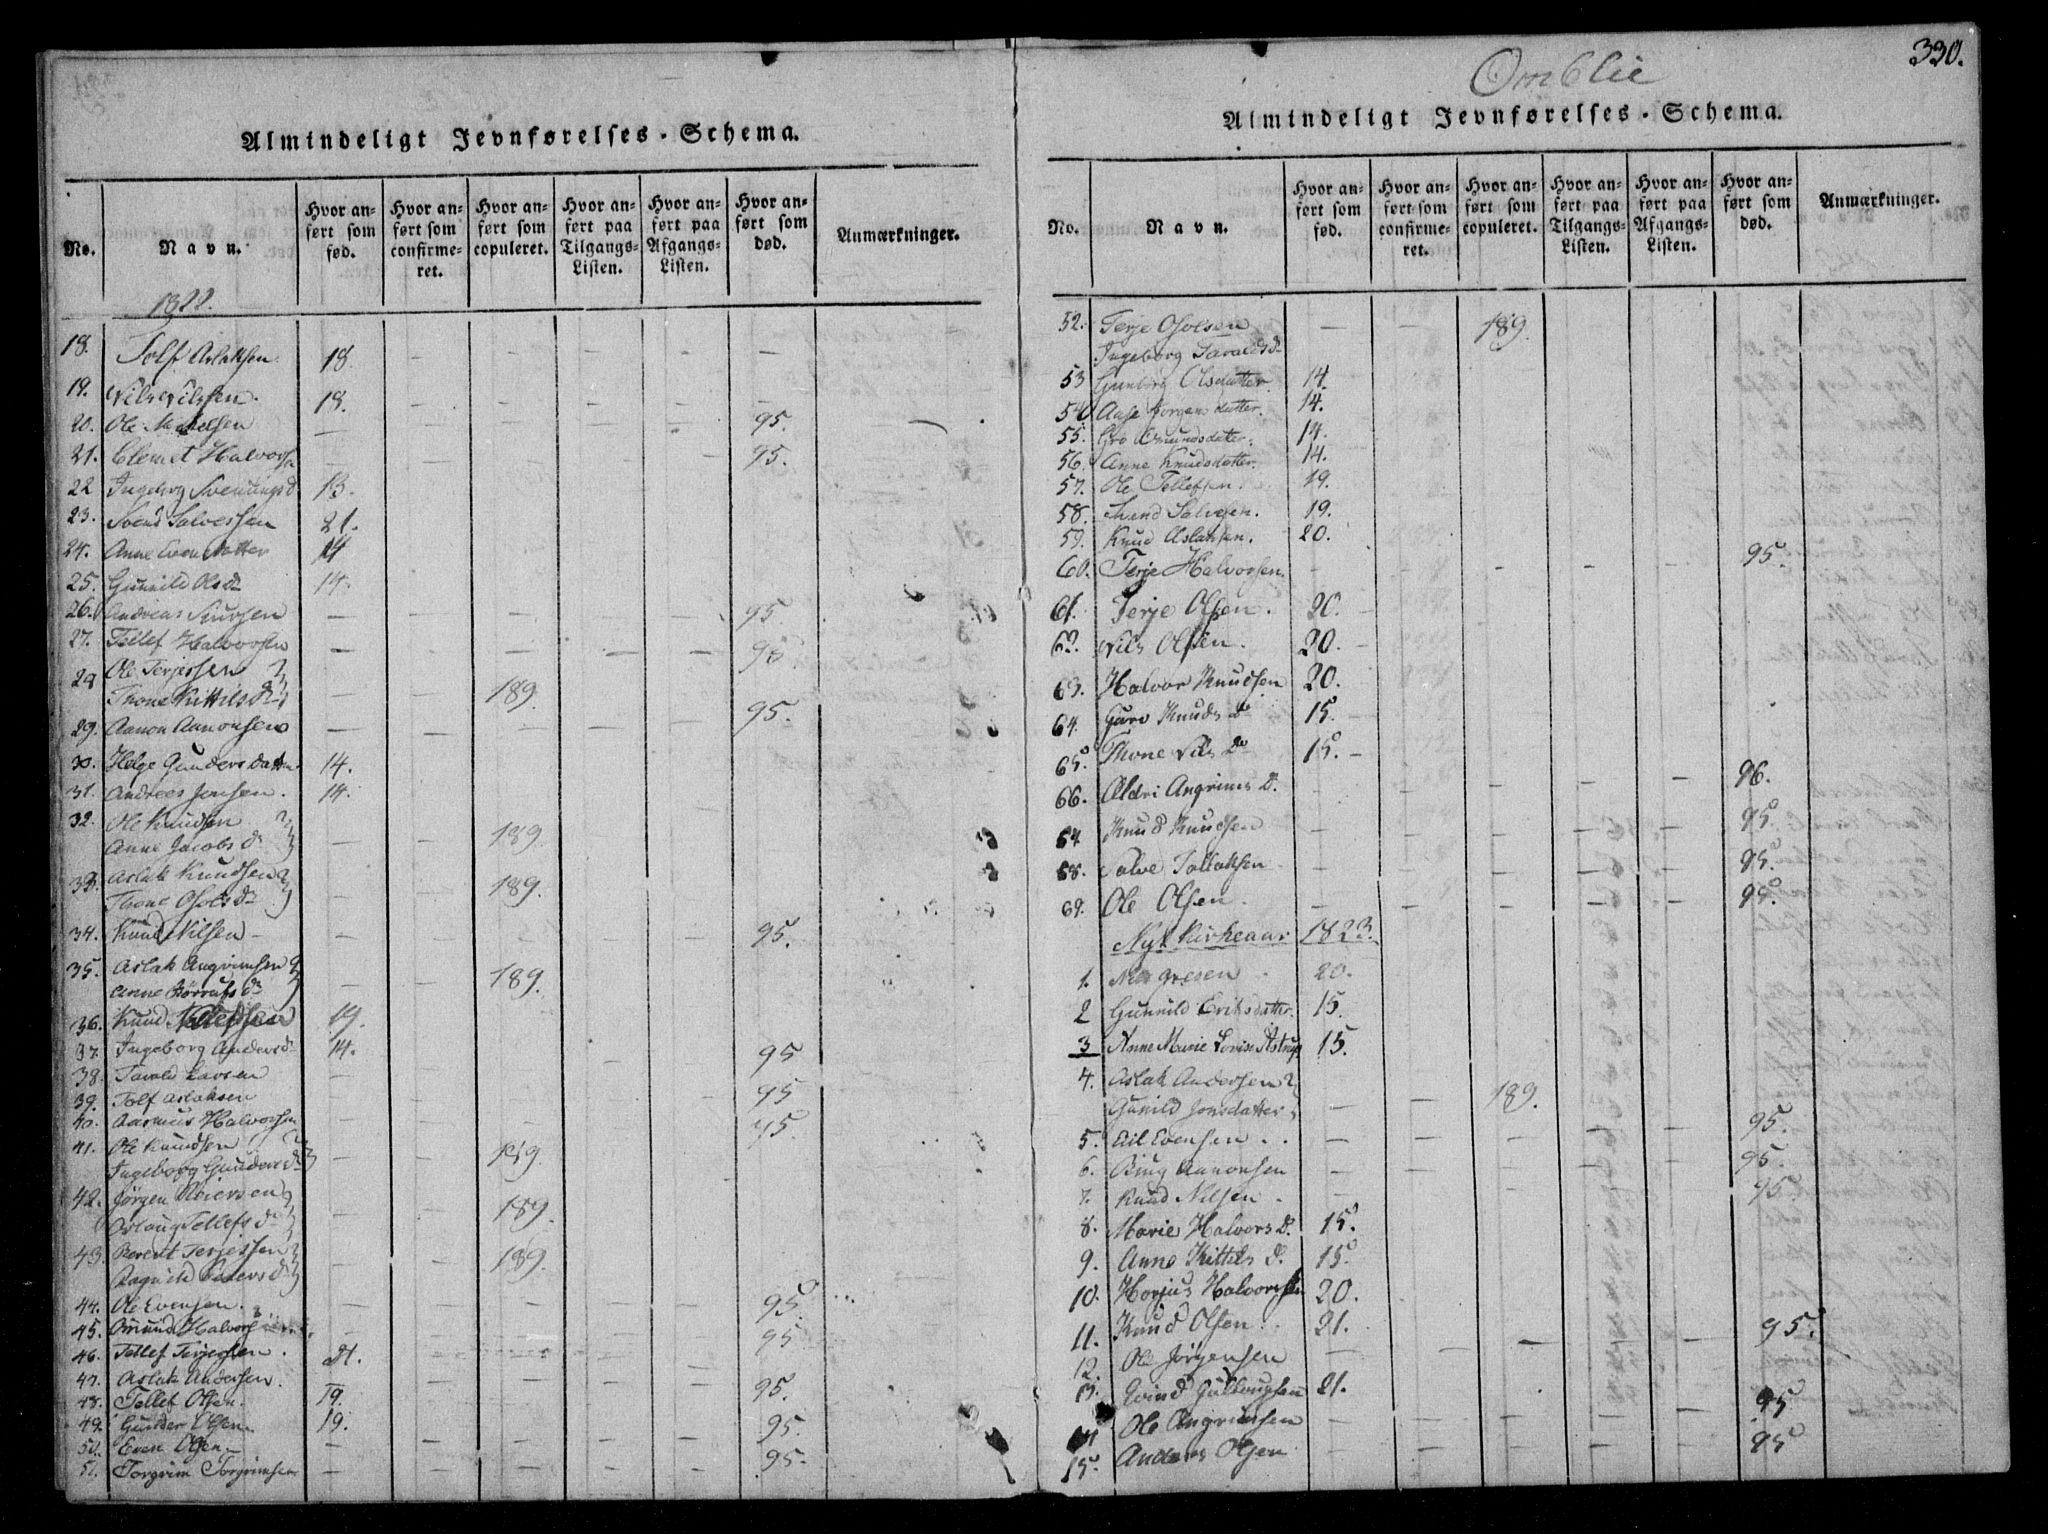 Almindeligt Jevnførelses-Schema.
No. Navn. Hvor anført som fød. Hvor anført som confirmeret. Hvor anført som copuleret. Hvor anført paa Tilgangs-Listen. Hvor anført paa Afgangs-Listen. Hvor anført som død. Anmærkninger.
1822.
18. Tolf Aslaksen. 18.
19. Nils Nilssen. 18.
20. Ole 95.
21. Clemet Halvorsen 95.
22 Ingeborg Svenungsd 13.
23. Svend Salvessen 21.
24. Anne Evensdatter 14
25. Gunnild Olsdr 14.
26. Andreas 95.
27. Tellef Halvorsen 95.
28 Ole Terjessen
Thone Kittilsdr 189.
29. Aanon Aanonsen 95.
30. Helge Gundersdatter 14.
31. Andrees Jensen. 14.
32. Ole Knudsen
Anne Jacobsdr 189.
33. Aslak Knudsen
Thone Osolsdr 189.
34. Knud Nilsen 95.
35. Aslak Angrimsen
Anne dr 189.
36. Knud 19.
37. Ingeborg Andersdr 14.
38. Tarald Larsen 95
39. Tolf Aslaksen 95
40. Aasmus Halvorsen 95.
41. Ole Knudsen
Ingeborg Gundersdr 189.
42. Jørgen Reiersen
Aslaug Tellefsdr 189.
43. Berent Terjessen
Ragnild Pedersdr 189.
44. Ole Evensen. 95.
45. Omund Halvorsen 95
46. Tellef Terjessen. 21.
47. Aslak Andersen. 95.
48. Tellef Olsen. 19.
49. Gunder Olsen 19.
50. Even Olsen 95.
51. Torgrim Torgrimsen 95.
330.
Omblie
Almindeligt Jevnførelses-Schema.
No. Navn. Hvor anført som fød. Hvor anført som confirmeret. Hvor anført som copuleret. Hvor anført paa Tilgangs-Listen. Hvor anført paa Afgangs-Listen. Hvor anført som død. Anmærkninger.
52. Terje Osolsen 189.
Ingeborg Taraldsdr
53 Gunbor Olsdatter 14.
54 Aase Jorgensdatter. 14.
55. Gro Omundsdatter. 14.
56. Anne Knudsdatter. 14.
57. Ole Tellefsen. 19.
58. Svend Salvesen. 19.
59. Knud Aslaksen. 20.
60. Terje Halvorsen. 95.
61. Terje Olsen. 20.
62. Nils Olsen. 20.
63. Halvor Knudsen 20.
64. Guro Knudsdr 15.
65. Thone Nilsdr 15.
66. Aldri Angrimsd. 96.
67 Knud Knudsen 95.
68. Salve Tollaksen 95.
69. Ole Olsen. 95.
Nyt Kirkeaar 1823.
1. 20.
2 Gunnild Eriksdatter. 15.
3 Anne Marie Lovise Astrup 15.
4. Aslak Andersen
Gunild Jonsdatter 189.
5. Eil Evensen. 95.
6. Aanonsen 95.
7. Knud Nilsen. 95.
8. Marie Halvorsd. 15.
9. Anne Kittelsd. 15.
10. Horjus Halvorsen 20.
11. Knud Olsen. 21.
12. Ole Jørgensen 95.
13. Eivind 21.
14 Ole Angrimsen 95
15. Anders Olsen 95